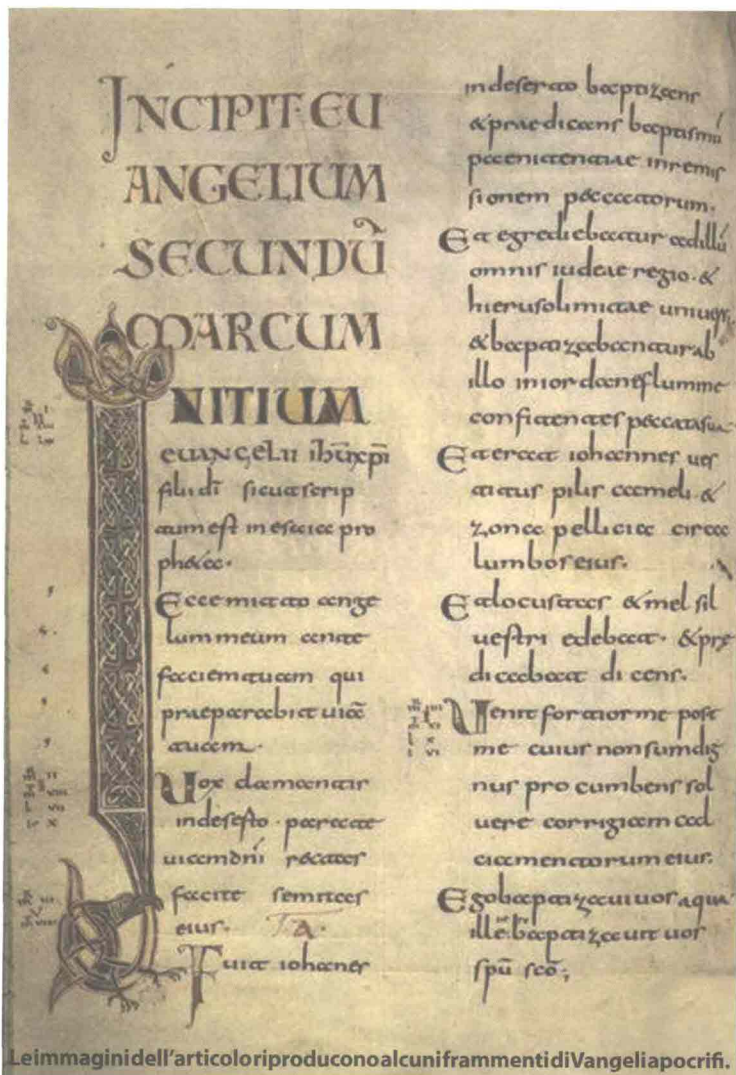 INCIPIT·EU
ANGELIUM
SECUNDŪ
MARCUM
INITIUM
euangelii ihū xpī
filii dī sicut scrip
tum est in esaia pro
pheta·
Ecce mitto ange
lum meum ante
faciem tuam qui
praeparabit uiā
tuam·
Uox clamantis
in deserto· parate
uiam dnī rectas
facite semitas
eius·
Fuit iohannes
in deserto baptizans
& praedicans baptismū
paenitentiae in remis
sionem peccatorum·
Et egrediebatur ad illū
omnis iudeae regio· &
hierusolimitae uniuersi
& baptizabantur ab
illo in iordane flumine
confitentes peccata sua·
Et erat iohannes ues
titus pilis cameli &
zona pellicia circa
lumbos eius·
Et locustas & mel sil
uestri edebat· & præ
dicabat dicens·
Uenit fortior me post
me cuius non sum dig
nus procumbens sol
uere corrigiam cal
ciamentorum eius·
Ego baptizaui uos aqua
ille baptizauit uos
spū scō;
Le immagini dell'articolo riproducono alcuni frammenti di Vangeli apocrifi.